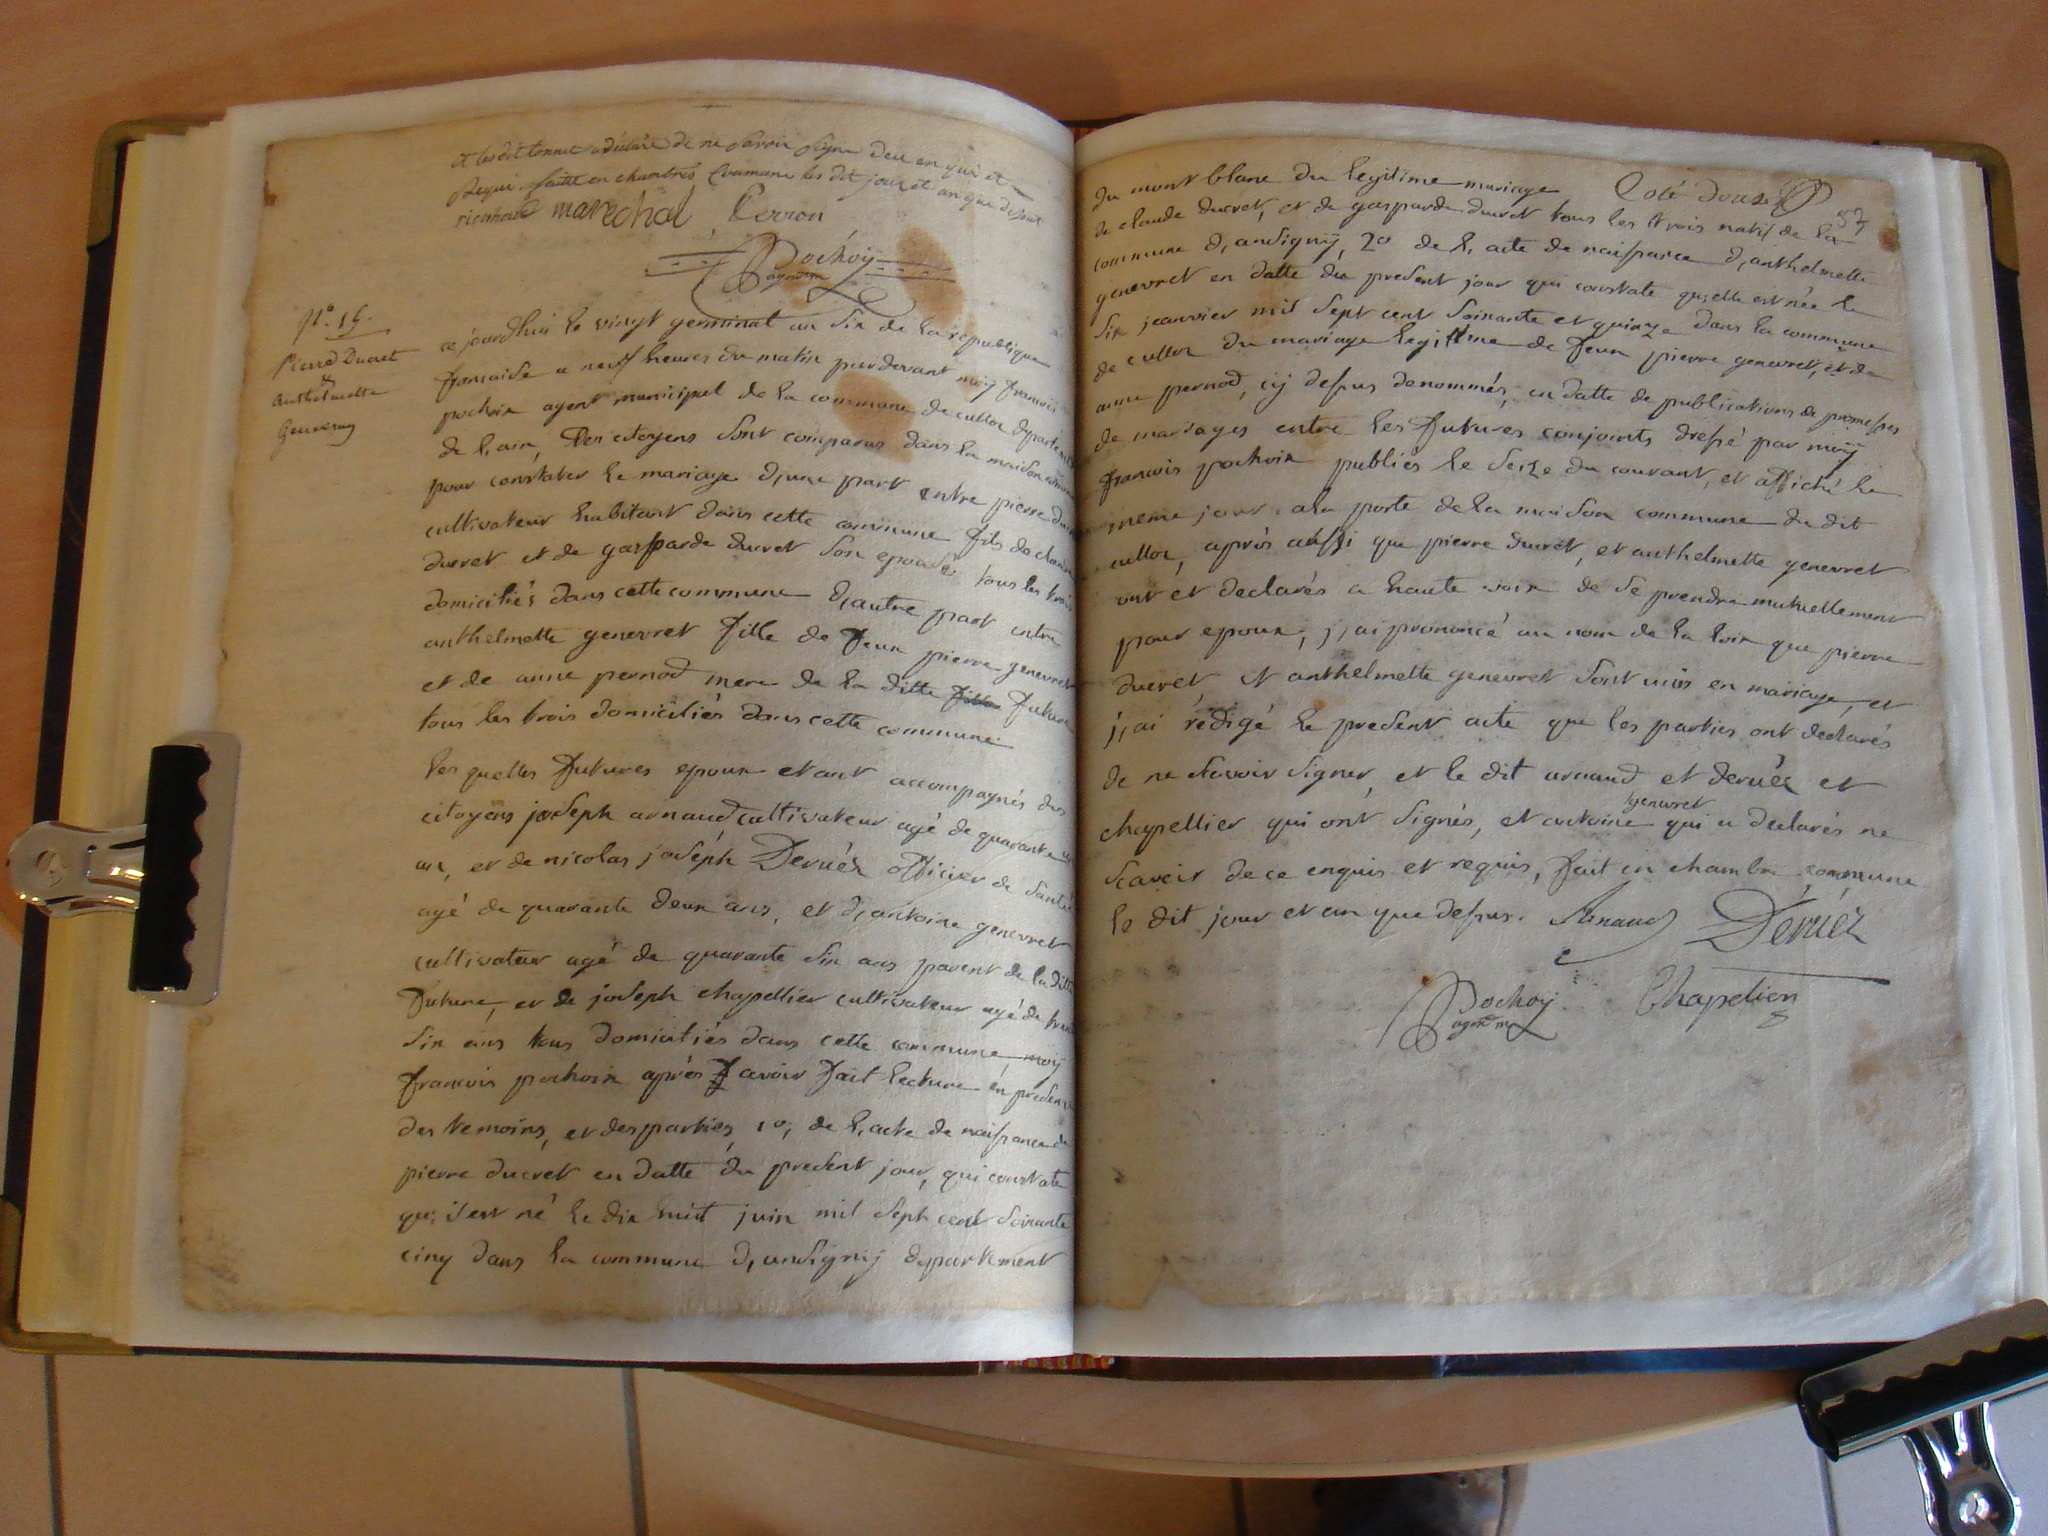 et les dit tonne a déclaré de ne savoir signe dece en quis et
Requi faitte en chambres Commune les dit jour et an que desus
marechal Perron
Pochoy
agent m
N.° 15.
Pierre Ducret
&
anthelmette
Genevray
ce jourdhui le vingt germinal an six de la republique
francaise a neuf heures du matin pardevant moij francois
pochoix agent municipal de la commune de culloz departement
de l,ain, les citoyens sont comparus dans la maison commune
pour constater le mariage d,une part entre pierre ducret
cultivateur habitant dans cette commune fils de claude
ducret et de gasparde ducret son epouse tous les trois
domiciliés dans cette commune d,autre part entre
anthelmette genevret fille de feux pierre genevret
et de anne pernod mere de la ditte fille future
tous les trois domiciliés dans cette commune.
les quelles futures epoux etant accompagnés des
citoyens joseph arnaud cultivateur agé de quarante
ans, et de nicolas joséph Deruéz officier de santé
agé de quarante deux ans, et d,antoine genevret
cultivateur agé de quarante six ans parent de la ditte
future, et de joseph chapellier cultivateur agé de trente
six ans tous domiciliés dans cette commune moij
francois pochoix après avoir fait lecture en presence
des temoins, et des parties, 1o, de l,acte de naissance de
pierre ducret en datte du present jour, qui constate
qu,il est né le dix huit juin mil sept cent soixante
cinq dans la commune d,ansignij departement
du mont blanc du legitime mariage
Coté douze
57
de claude ducret, et de gasparde ducret tous les trois natif de la
commune d,ansignij, 2o de l,acte de naissance d,anthelmette
genevret en datte du present jour qui constate qu,elle est née le
six jeanvier mil sept cent soixante et quinze dans la commune
de culloz du mariage legittime de feux pierre genevret, et de
anne pernod, cij dessus denommés, en datte de publications de promesses
de mariages entre les futures conjoints dressé par moij
francois pochoix publiés le seize du courant, et affiché le
meme jour a la porte de la maison commune du dit
culloz, après aussi que pierre ducret, et anthelmette genevret
ont ét declarés a haute voix de se prendre mutuellement
pour epoux, j,ai prononcé au nom de la loix que pierre
ducret, et anthelmette genevret sont unis en mariage, et
j,ai rédigé le present acte que les parties ont declarés
de ne scavoir signer, et le dit arnaud et deruéz et
chapellier qui ont signés, et antoine genevret qui a declarés ne
scavoir de ce enquis et requis, fait en chambre commune
le dit jour et an que dessus. Arnaud Deruéz
Pochoy Chapelier
agent m